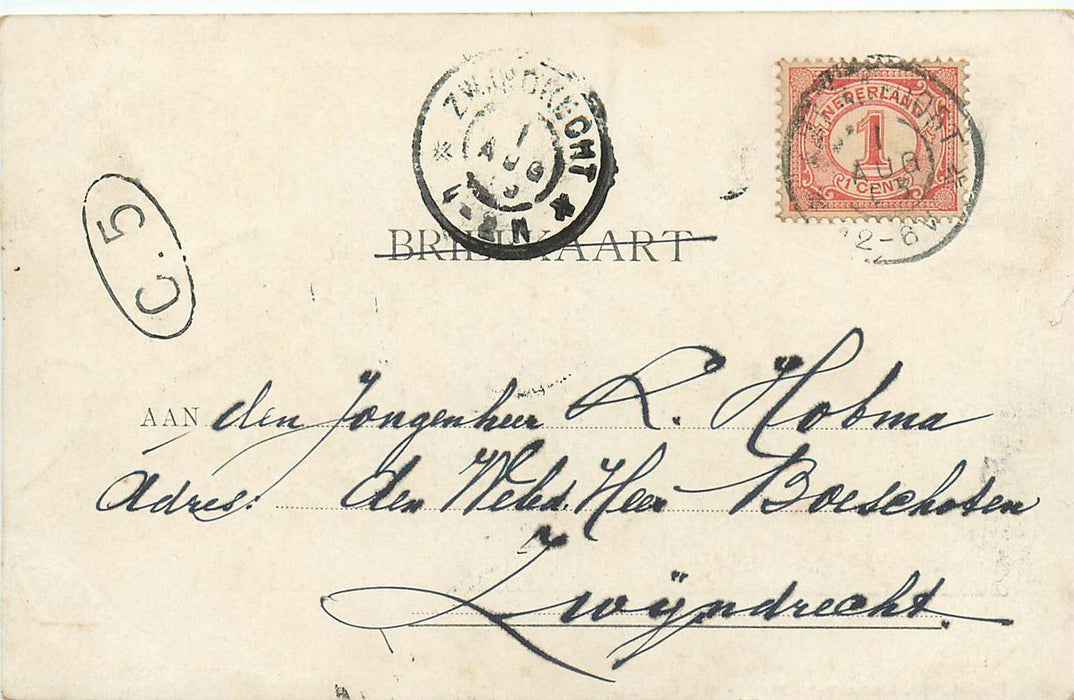 ZWIJNDRECHT
1
AUG
4-8 N
NEDERLAND
1
1 CENT
1
AUG
12-6V
C.5
BRIEFKAART
AAN den Jongenheer R. Hobma
Adres: den WelEd. Heer Boeschoten
Zwijndrecht.